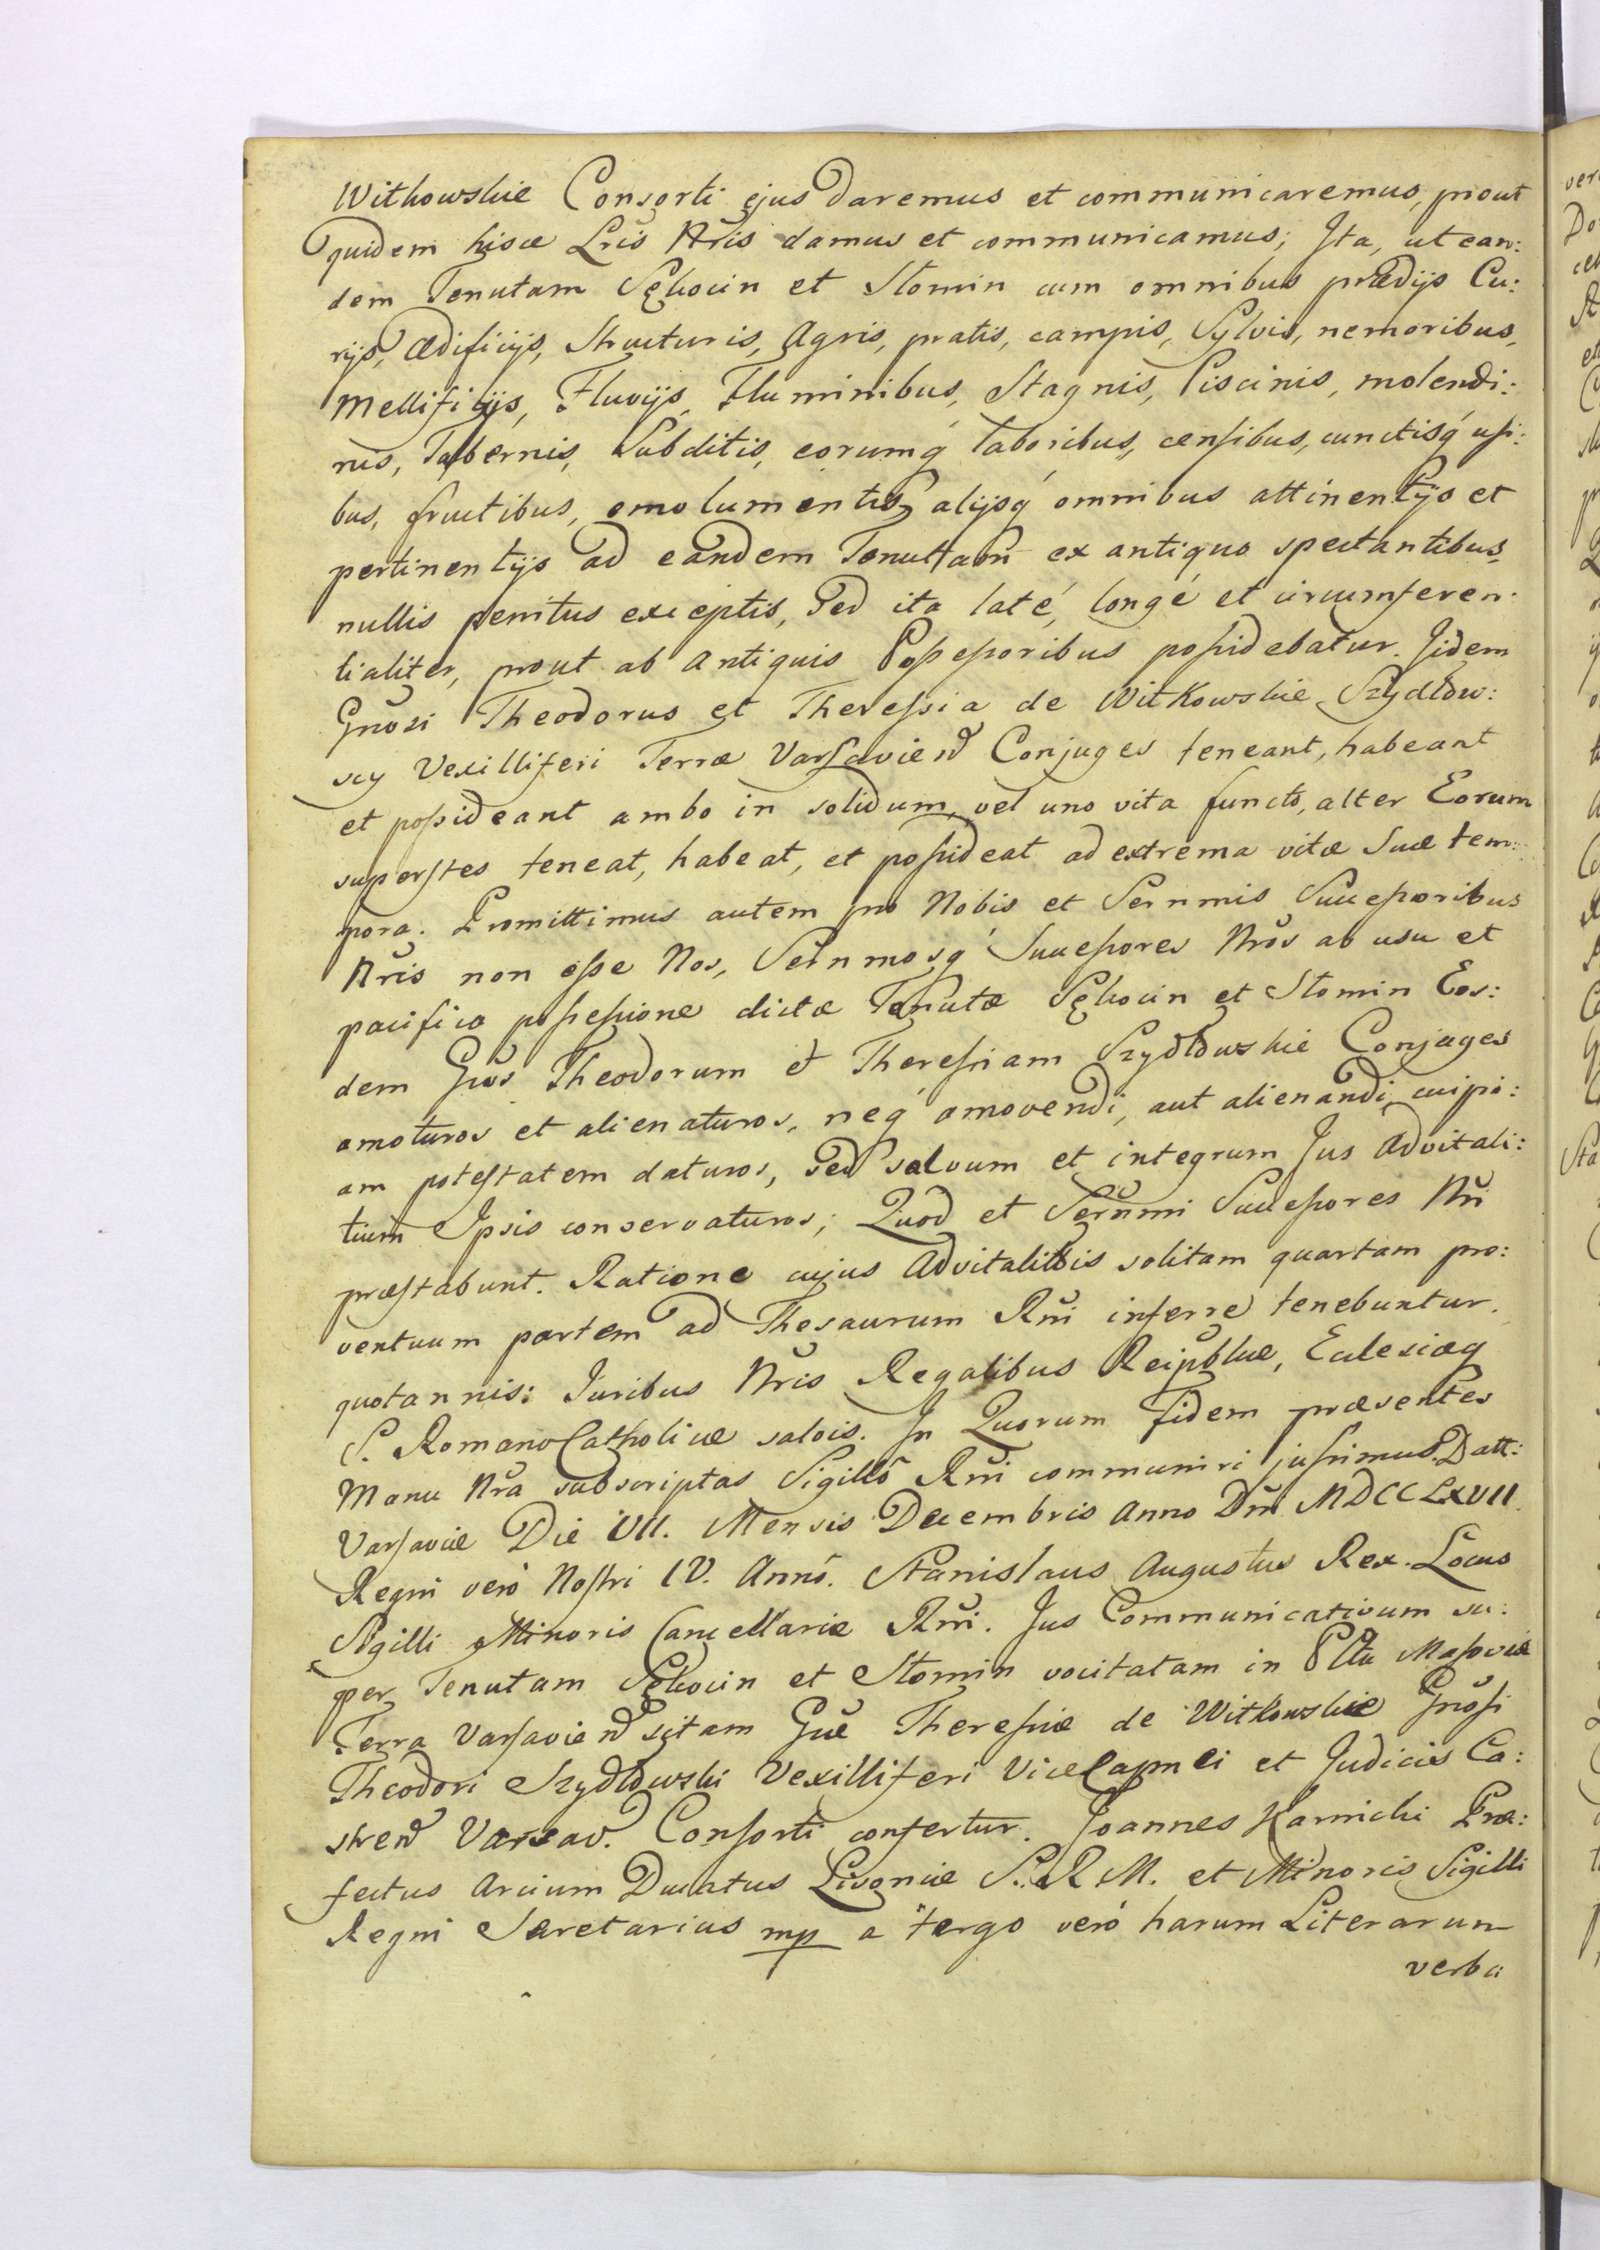 Witkowskie Consorti ejus daremus et communicaremus, prout
quidem hisce Lris Nris damus et communicamus; Ita, ut ean:
dem Tenutam Sękocin et Słomin cum omnibus prædijs Cu:
rijs, Ædificijs, Structuris, Agris, pratis, campis, Sylvis, nemoribus,
Mellificijs, Fluvijs, Fluminibus, Stagnis, Piscinis, molendi:
nis, Tabernis, Subditis, eorumq́ laboribus, censibus, cunctisq́ usi:
bus, fructibus, emolumentis, alijsq́ omnibus attinentijs et
pertinentijs ad eandem Tenuttam ex antiquo spectantibus,
nullis penitus exceptis, Sed ita laté, longé et circumferen:
tialiter, prout ab Antiquis Possessoribus possidebatur. Iidem
Gnosi Theodorus et Theressia de Witkowskie Szydłow:
scy Vexilliferi Terræ Varsavien Conjuges teneant, habeant
et possideant ambo in solidum, vel uno vita functo, alter Eorum
superstes teneat, habeat, et possideat ad extrema vitæ Suæ tem:
pora. Promittimus autem pro Nobis et Sernmis Successoribus
Nris non esse Nos, Sernmosq́ Successores Nros ab usu et
pacifica possessione dictæ Tenutæ Sękocin et Słomin Eos:
dem Gnos Theodorum et Theressiam Szydłowskie Conjuges
amoturos et alienaturos, neq́ amovendi, aut alienandi cuipi:
am potestatem daturos, Sed salvum et integrum Jus Advitali:
tium Ipsis conservaturos; Quod et Sernmi Successores Nri
præstabunt. Ratione cujus Advitalitatis solitam quartam pro:
ventuum partem ad Thesaurum Rni inferre tenebuntur
quotannis: Juribus Nris Regalibus Reipblicæ, Ecclesiæq
S. Romano Catholicæ salvis. In Quorum fidem præsentes
Manu Nra subscriptas Sigillo Rni communiri jussimus. Datt:
Varsaviæ Die VII. Mensis Decembris Anno Dni MDCCLXVII.
Regni veró Nostri IV. Anno. Stanislaus Augustus Rex. Locus
Sigilli Minoris Cancellariæ Rni. Jus Communicativum su:
per Tenutam Sękocin et Słomin vocitatam in Pltu Masoviæ
Terra Varsavien sitam Gnæ Theressiæ de Witkowskie Gnosi
Theodori Szydłowski Vexilliferi ViceCapnei et Judicis Ca:
stren Varsav. Consorti confertur. Joannes Karnicki Præ:
fectus Arcium Ducatus Livoniæ S. R. M. et Minoris Sigilli
Regni Secretarius mp a tergo veró harum Literarum
verba